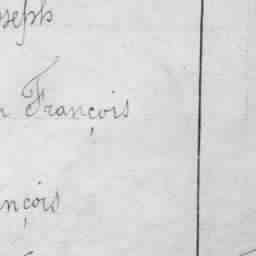 oseph
n François
nçois